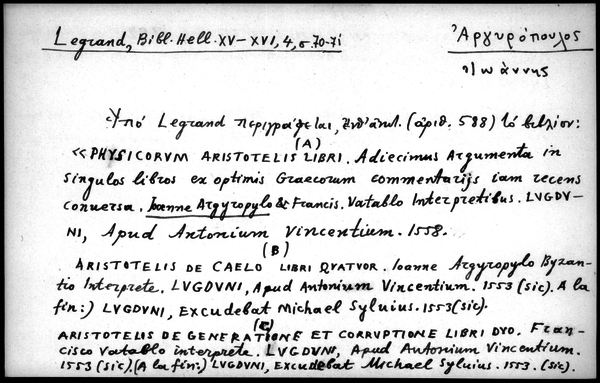 Legrand, Bibl. Hell. XV–XVI, 4, σ. 70-71
Ἀργυρόπουλος
Ἰωάννης
Ὑπό Legrand περιγράφεται, ἔνθ' ἀνωτ. (ἀριθ. 588) τό βιβλίον:
(A)
<<PHYSICORVM ARISTOTELIS LIBRI. Adiecimus Argumenta in
singulos libros ex optimis Graecorum commentarijs iam recens
conuersa. Ioanne Argyropylo & Francis. Vatablo Interpretibus. LVGDV-
NI, Apud Antonium Vincentium. 1558.
(B)
ARISTOTELIS DE CAELO LIBRI QVATVOR. Ioanne Argyropylo Byzan-
tio Interprete. LVGDVNI, Apud Antonium Vincentium. 1553 (sic). A la
fin:) LVGDVNI, Excudebat Michael Syluius. 1553 (sic).
(C)
ARISTOTELIS DE GENERATIONE ET CORRVPTIONE LIBRI DVO. Fran-
cisco Vatablo interprete. LVGDVNI, Apud Antonium Vincentium.
1553 (sic). (A la fin:) LVGDVNI, Excudebat Michael Syluius. 1553. (sic).